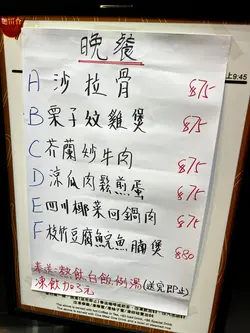 晚餐
A 沙拉骨 $75
B 栗子炆雞煲 $75
C 芥蘭炒牛肉 $75
D 涼瓜肉鬆煎蛋 $75
E 四川椰菜回鍋肉 $75
F 枝竹豆腐鯇魚腩煲 $80
奉送:熱飲,白飯,例湯(送完即止)
凍飲加3元